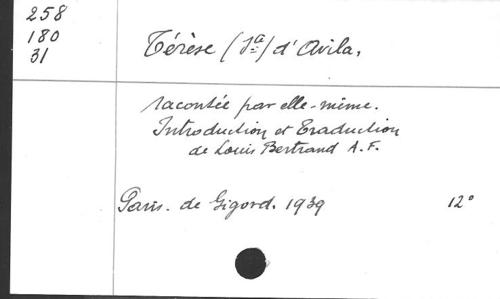 258
180
31
Térèse (Sª) d'Avila,
racontée par elle-même.
Introduction et Traduction
de Louis Bertrand A.F.
Paris. de Gigord. 1939 12°